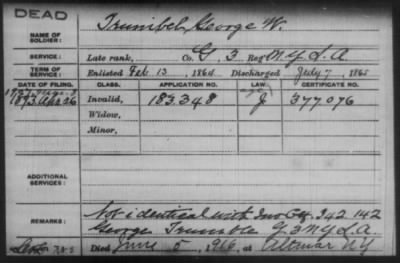 DEAD
NAME OF SOLDIER: Trumbel, George W.
SERVICE: Late rank, Co. G, 3 Reg't N.Y.L.A.
TERM OF SERVICE: Enlisted Feb. 13, 1864 Discharged July 7, 1865
DATE OF FILING. CLASS. APPLICATION NO. LAW. CERTIFICATE NO.
Invalid, 183.348 J 377076
Widow,
Minor,
ADDITIONAL SERVICES:
REMARKS: Not identical with Inv Ctf. 342.142
George Trumble G 3 N.Y.L.A.
Died June 5, 1916, at Altmar NY